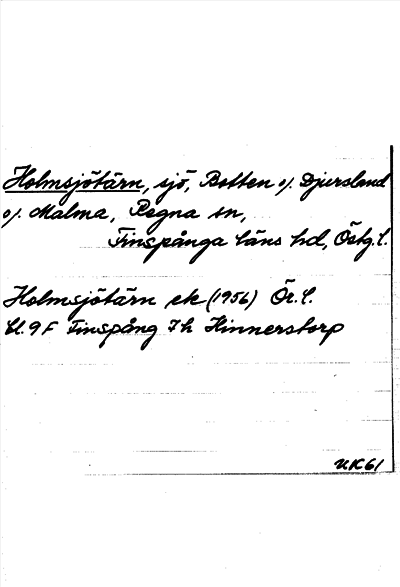 Holmsjötärn, sjö, Botten o/. Djursland
o/. Malma, Regna sn,
Finspånga läns hd, Östg. l.
Holmsjötärn ek (1956) Ör. l.
bl. 9F Finspång 7h Hinnerstorp
UK61